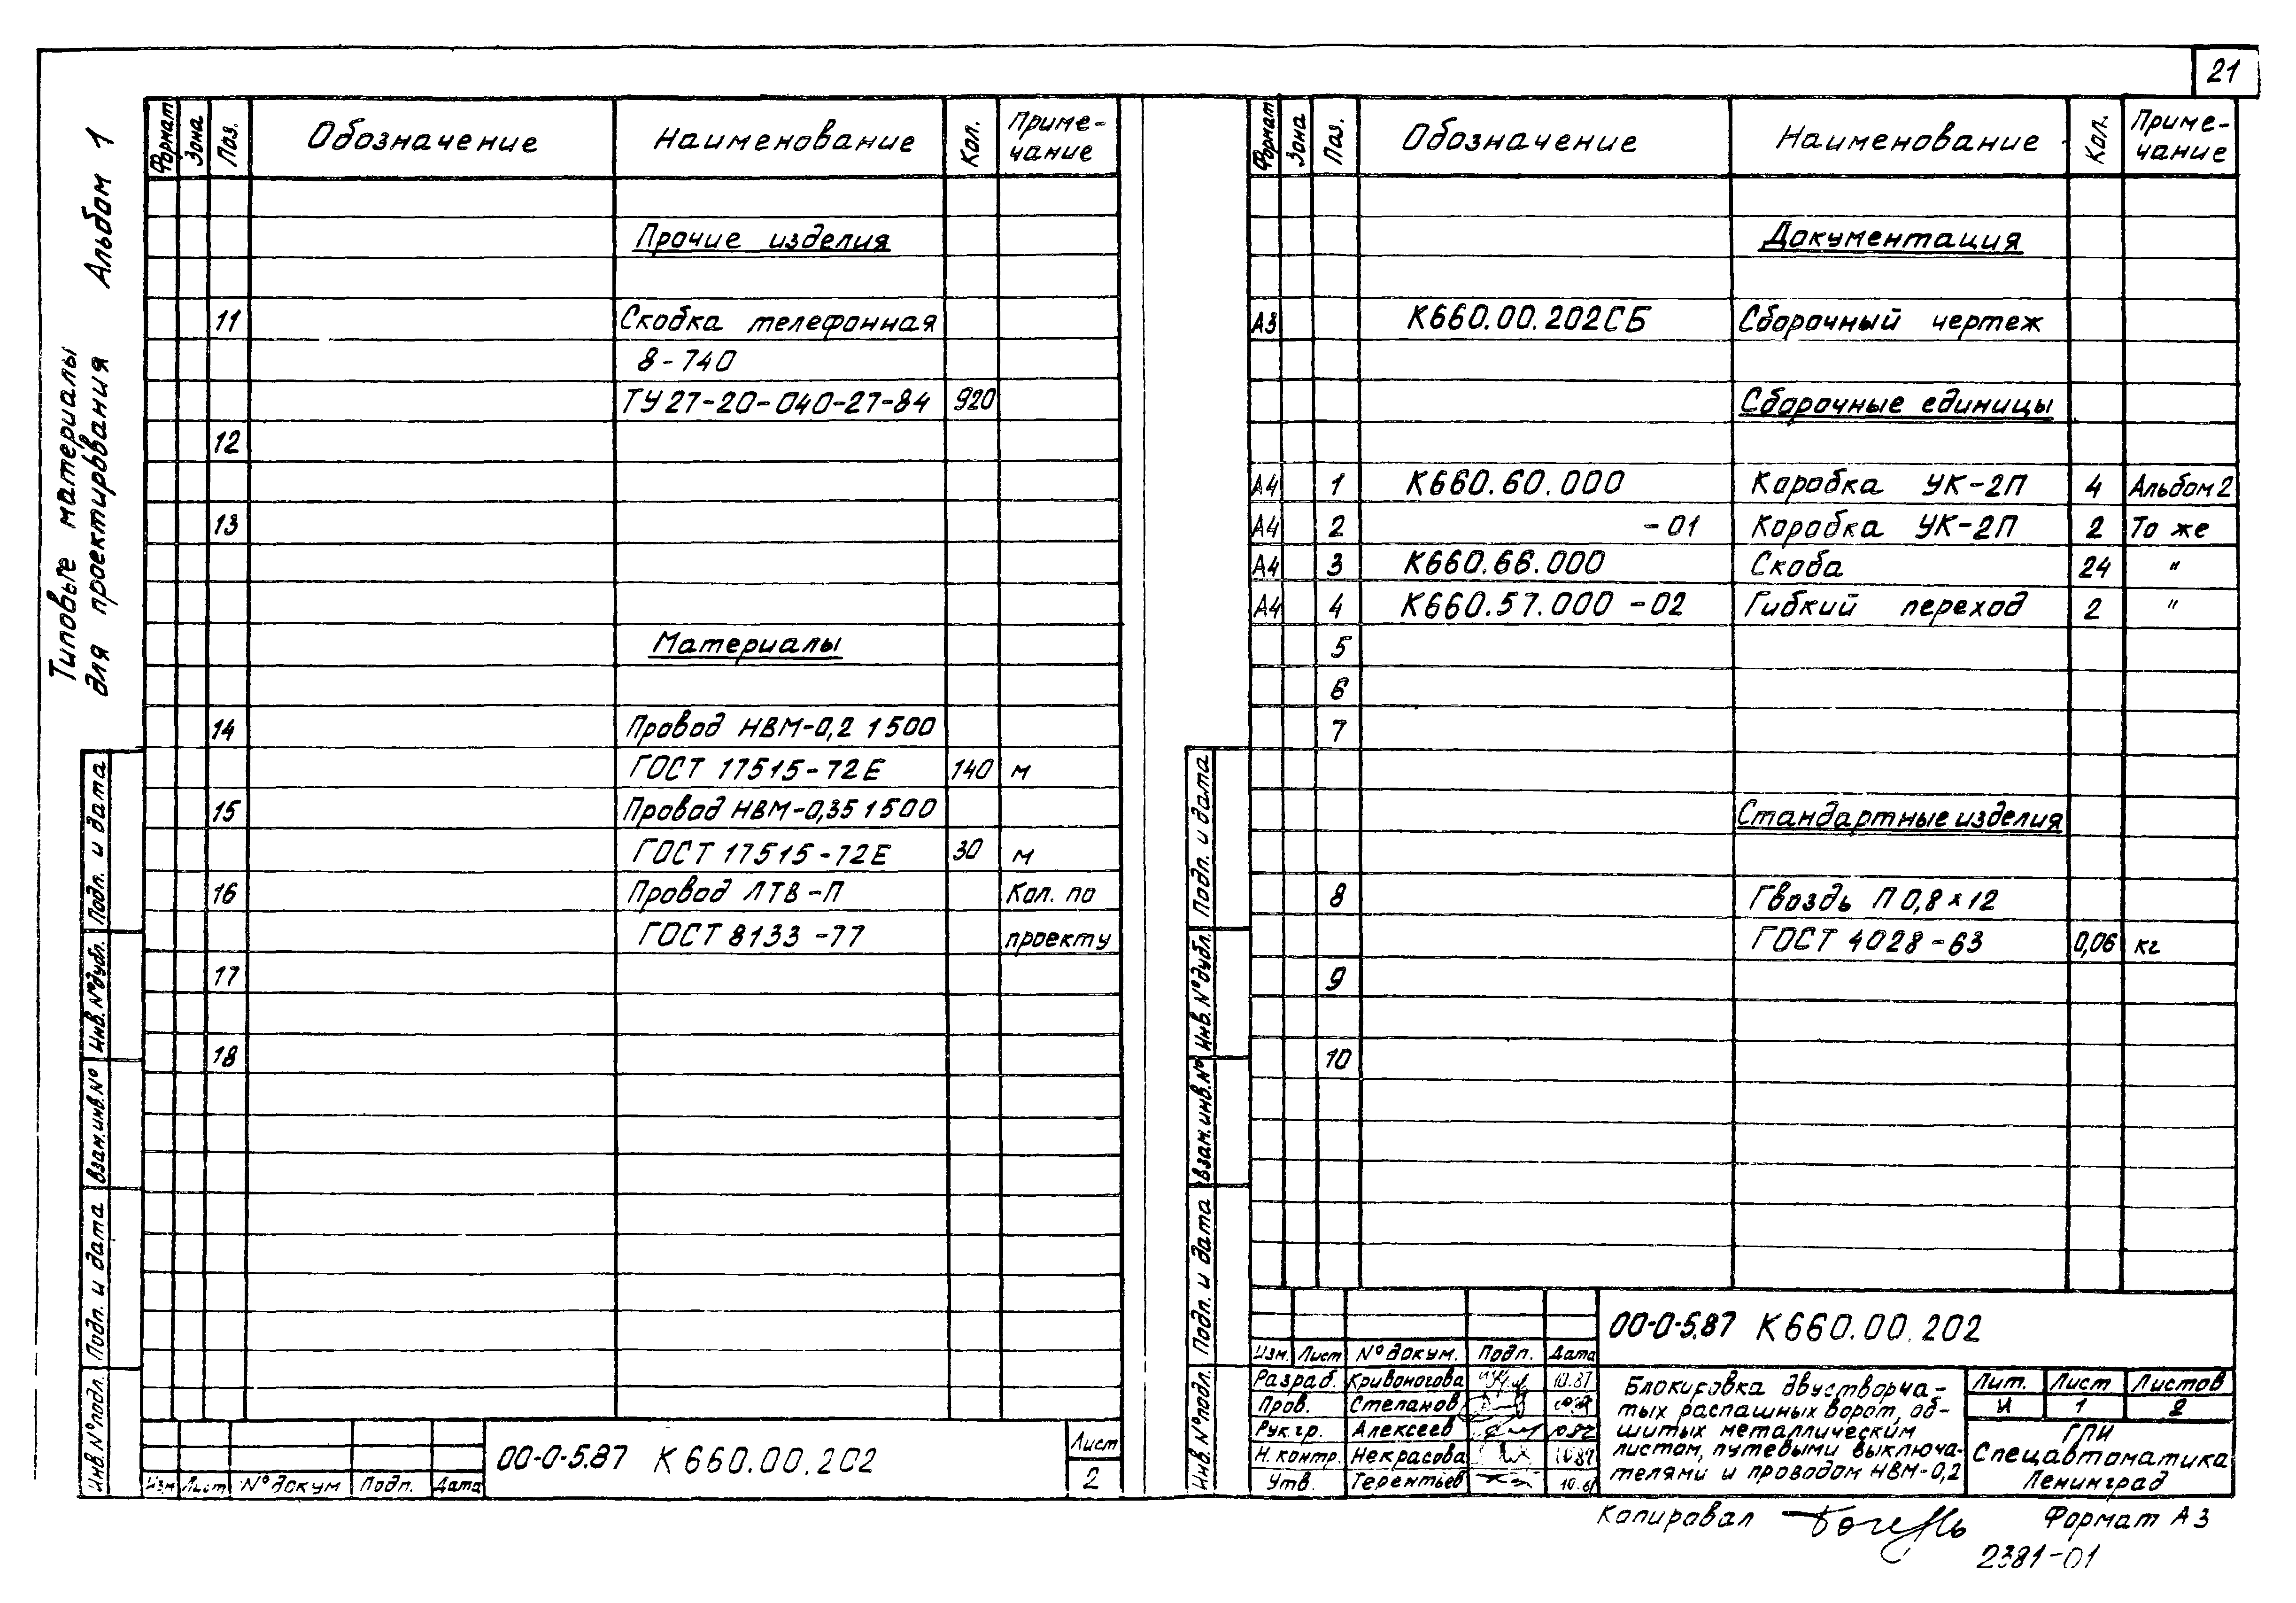 21
Типовые материалы
для проектирования Альбом 1
Формат Зона Поз. Обозначение Наименование Кол. Приме-
чание
Прочие изделия
11 Скобка телефонная
8-740
ТУ27-20-040-27-84 920
12
13
Материалы
14 Провод НВМ-0,2 1500
ГОСТ 17515-72Е 140 м
15 Провод НВМ-0,35 1500
ГОСТ 17515-72Е 30 м
16 Провод ЛТВ-П Кол. по
ГОСТ 8133-77 проекту
17
18
Подп. и дата
Инв. №дубл.
Взам.инв.№
Подп. и дата
Инв.№подл.
Изм Лист №докум Подп. Дата
00-0-5.87 К660.00.202
Лист
2
Формат Зона Поз. Обозначение Наименование Кол. Приме-
чание
Документация
А3 К660.00.202СБ Сборочный чертеж
Сборочные единицы
А4 1 К660.60.000 Коробка УК-2П 4 Альбом2
А4 2 -01 Коробка УК-2П 2 То же
А4 3 К660.66.000 Скоба 24 "
А4 4 К660.57.000-02 Гибкий переход 2 "
5
6
7
Стандартные изделия
8 Гвоздь П 0,8×12
ГОСТ 4028-63 0,06 кг
9
10
Подп. и дата
Инв.№дубл.
Взам.инв.№
Подп. и дата
Инв.№подл.
00-0-5.87 К660.00.202
Изм. Лист №докум. Подп. Дата
Разраб. Кривоногова 10.87
Пров. Степанов
Рук.гр. Алексеев
Н.контр. Некрасова
Утв. Терентьев
Блокировка двустворча-
тых распашных ворот, об-
шитых металлическим
листом, путевыми выключа-
телями и проводом НВМ-0,2
Лит. Лист Листов
И 1 2
ГПИ
Спецавтоматика
Ленинград
Копировал Формат А3
2381-01